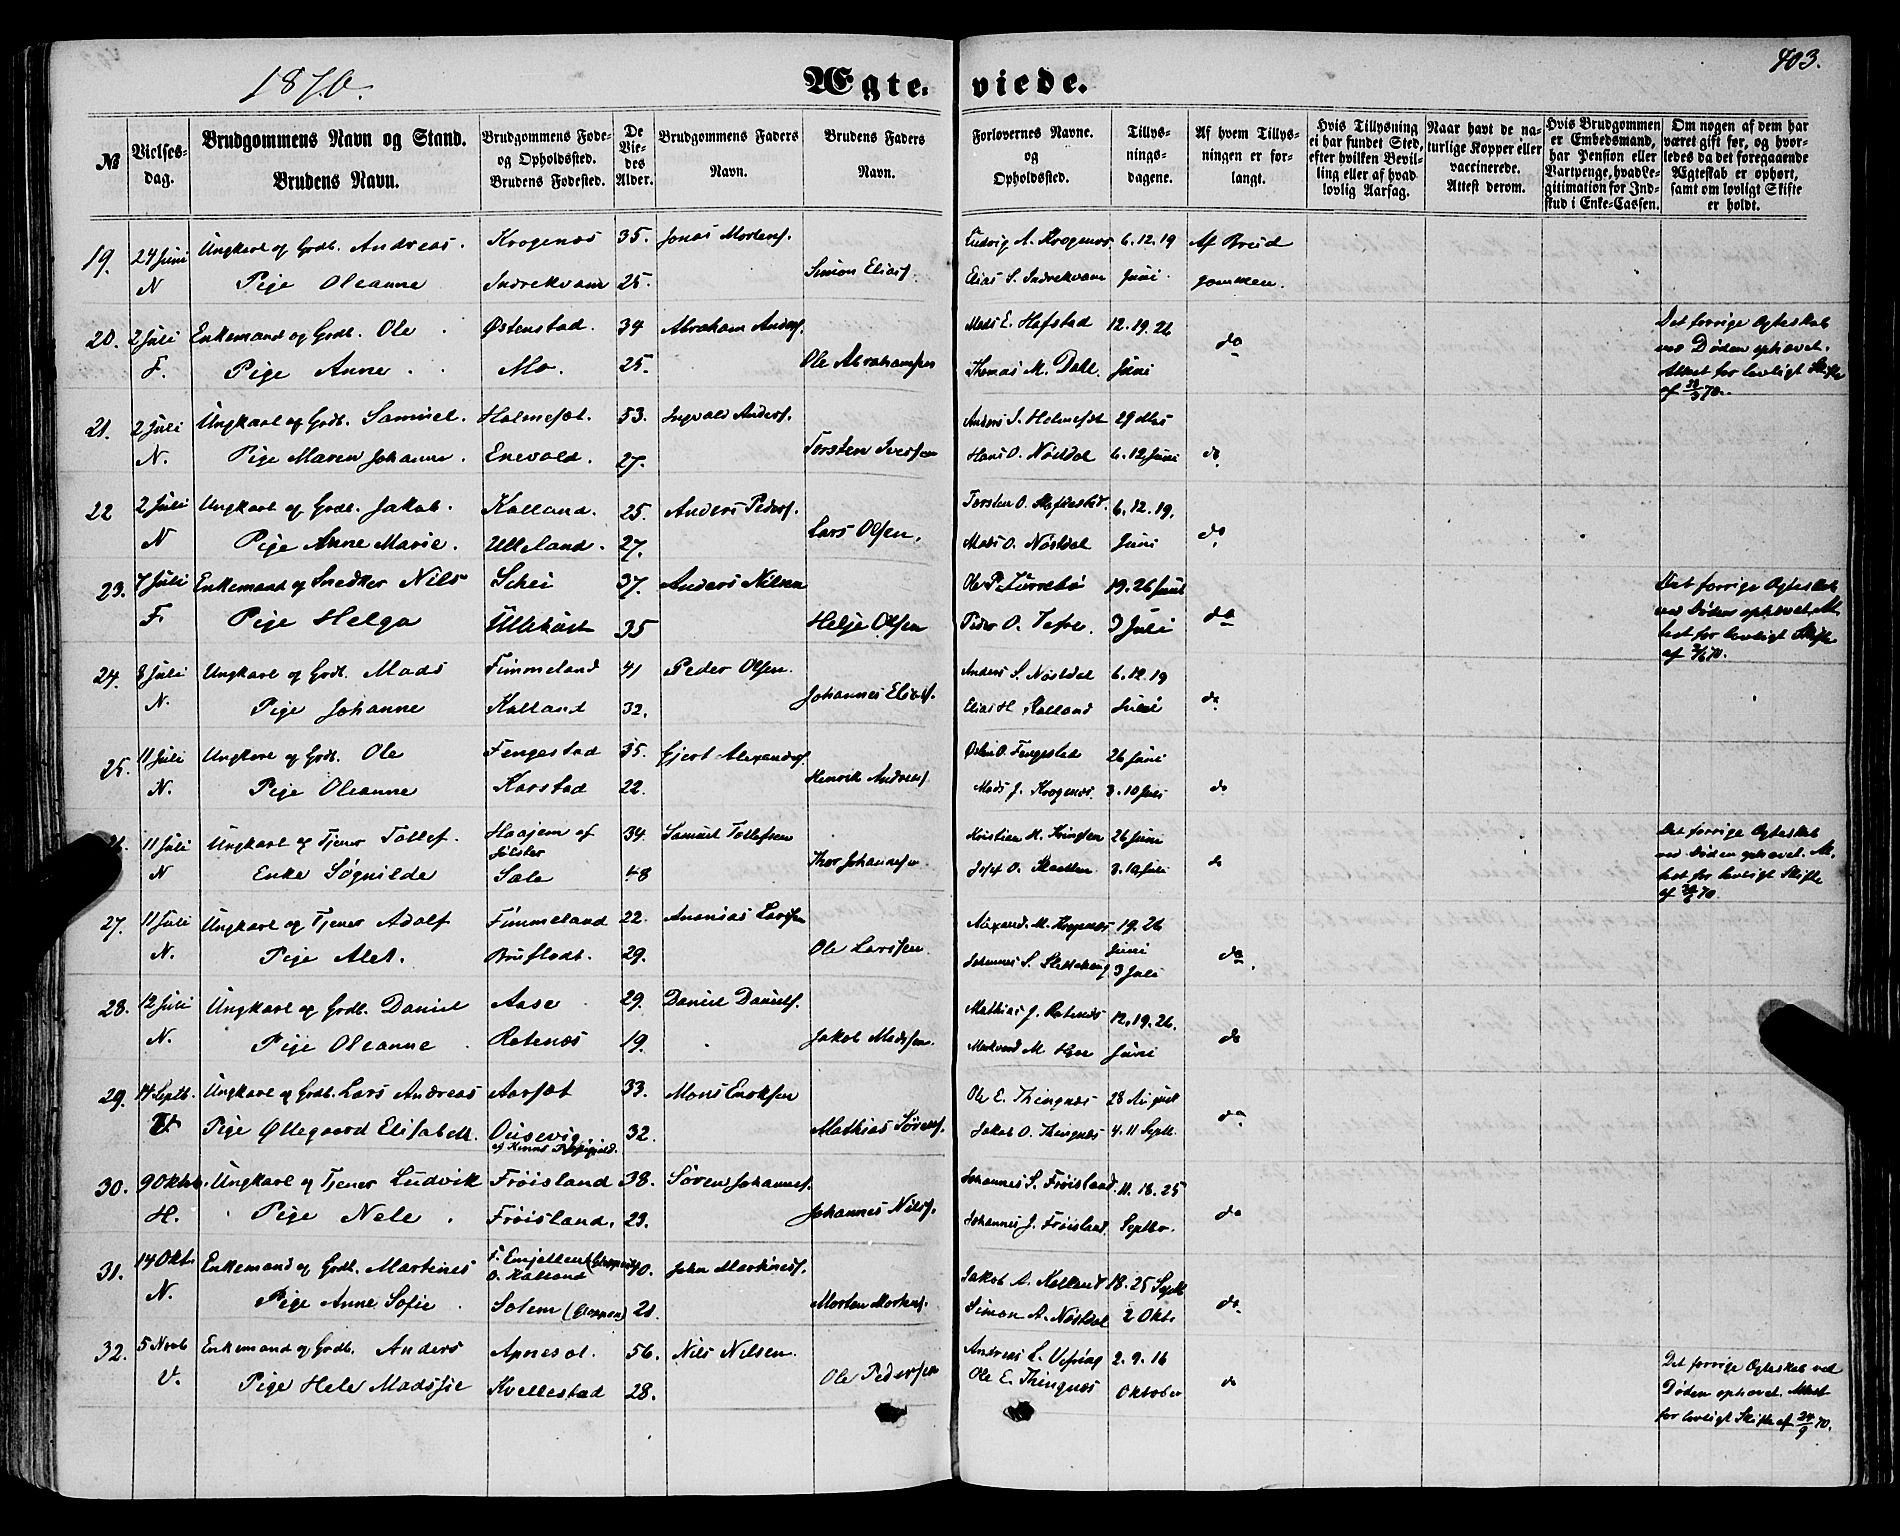 1870.
Ægte-
viede.
403.
№
Vielses-
dag.
Brudgommens Navn og Stand.
Brudens Navn.
Brudgommens Føde-
og Opholdssted.
Brudens Fødested.
De
Vie-
des
Alder.
Brudgommens Faders
Navn.
Brudens Faders
Navn.
Forlovernes Navne.
og
Opholdssted.
Tillys-
nings-
dagene.
Af hvem Tillys-
ningen er for-
langt.
Hvis Tillysning
ei har fundet Sted,
efter hvilken Bevil-
ling eller af hvad
lovlig Aarsag.
Naar havt de na-
turlige Kopper eller
vaccinerede.
Attest derom.
Hvis Brudgommen
er Embedsmand,
har Pension eller
Vartpenge, hvad Le-
gitimation for Ind-
skud i Enke-Cassen.
Om nogen af dem har
været gift før, og hvor-
ledes da det foregaaende
Ægteskab er ophørt,
samt om lovligt Skifte
er holdt.
19. 24 Juni Ungkarl og Grdb. Andreas. Krogenæs 35. Jonas Mortens. Ludvig A. Krogenæs 6.12.19 Af Brud
N Pige Oleanne Indrekvam 25. Simon Elias. Elias S. Indrekvam Juni. gommen.
20. 2 Juli Enkemand og Grdb. Ole Østenstad. 34 Abraham Anders. Mads E. Hafstad 12.19.26 do Det forrige Egteskab
F. Pige Anne Mo. 25. Ole Abrahamsen Thomas M. Dahl. Juni ved Døden ophævet.
Attest for lovligt Skifte
21. 2 Juli Ungkarl og Grdb. Samuel. Holmesæt. 53. Ingvald Anders. Anders S. Holmesæt 29
N. Pige Maren Johanne. Enevald. 27. Torsten Iversen Hans O. Nøstdal 6.12 Juni do
22 2 Juli Ungkarl og Grdb. Jakob. Kalland. 25. Anders Peders. Torsten O. 6.12.19.
N Pige Anne Marie. Ulleland. 27. Lars Olsen. Mads O. Nøstdal Juni do
23. 7 Juli Enkemand og Snedker Nils Schei 37. Anders Nilsen Ole P. 19.26 Juni Det forrige Egteskab
F. Pige Helga 35 Helje Olsen Peder O. 3 Juli do ved Døden ophævet. At-
test for lovligt Skifte
24. 8 Juli Ungkarl og Grdb. Mads Fimmeland 41 Peder Olsen. Anders S. Nøstdal 6.12.19
N. Pige Johanne Kalland 32. Johannes Elias. Elias H. Kalland Juni do
25. 11 Juli Ungkarl og Grdb. Ole Fengestad 35. Gjert Alexanders. Fengestad 26 Juni
N. Pige Oleanne Karstad 22. Henrik Andreas. Mads J. Krogenæs. 3.10 Juli do
11 Juli Ungkarl og Tjener Tollef. Haajem af 34. Samuel Tollefsen Kristian M. 26 Juni Det forrige Egteskab
Jølster
N Enke Søgnilde Sale 48 Thor Johannesen O. 3.10 Juli do ved Døden ophævet. At-
test for lovligt Skifte
27. 11 Juli Ungkarl og Tjener Adolf Fimmeland 22. Ananias Larsen Alexand. M. Krogenæs 19.26
N. Pige Alet. Bruflodt. 29. Ole Larssen. Johannes S. Juni
3 Juli do
28. 12 Juli Ungkarl og Grdb. Daniel Aase 29. Daniel Daniels. Mathias J. Rotenæs 12.19.26.
N. Pige Oleanne Rotenæs 19. Jakob Madssen. Markvard M. Juni do
29. 14 Septb. Ungkarl og Grdb. Lars Andreas Aarsæt 33. Mons Eriksen Ole E. Thingnæs 28 August
Pige Øllegaard Elisabeth. Ousevig 32. Mathias Sørens. Jakob O. Thingnæs 4.11 Septb. do
30. 9 Oktb. Ungkarl og Tjener Ludvik Frøisland 38. Søren Johannes. Johannes S. Frøisland 11.18.25
H. Pige Nele Frøisland. 23. Johannes Nils. Johannes J. Frøisland Septbr. do
31. 14 Oktb. Enkemand og Grdb. Martines 40. John Martines. Jakob A. Kalland 18.25 Septb
O. Kalland
N. Pige Anne Sofie Solem (Gloppen) 21 Morten Mortens. Simon A. Nøstdal 2 Oktb. do
32. 5 Novb Enkemand og Grdb. Anders Apnesæt. 56. Nils Nilsen. Andreas L. Vefring 2.9.16
V. Pige Hele Madssie Kvellestad 28. Ole Pedersen Ole E. Thingnæs Oktober do Det forrige Egteskab ved
Døden ophævet. Attest
for lovligt Skifte af 24/9 70.